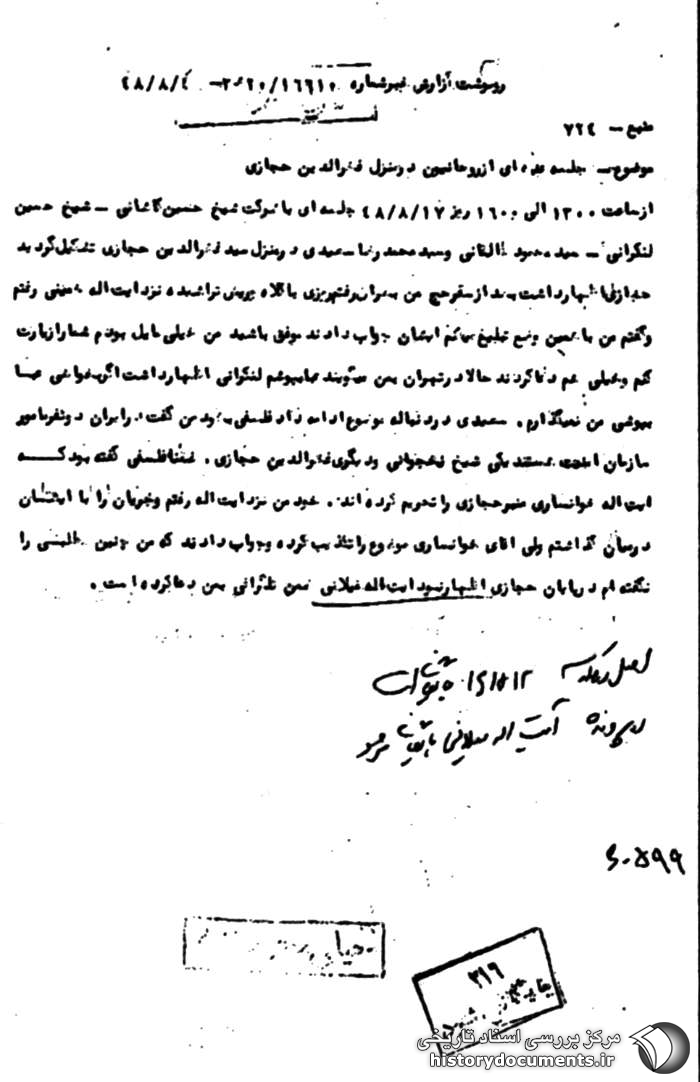 رونوشت گزارش خبر شماره ۱۶۶۱۰/ ۴۸/۸/
منبع – ۷۲۴
موضوع – جلسه عده ای از روحانیون در منزل فخرالدین حجازی
از ساعت ۱۳۰۰ الی ۱۶۰۰ روز ۴۸/۸/۱۷ جلسه ای با شرکت شیخ حسین کاشانی – شیخ حسین
لنکرانی – سید محمود طالقانی و سید محمد رضا سعیدی در منزل سید فخرالدین حجازی تشکیل گردید
حجازی اظهار داشت بعد از سفر حج من به رفتم با کلاه و ریش تراشیده نزد ایت اله خمینی رفتم
و گفتم من با همین وضع تبلیغ میکنم ایشان جواب دادند موفق باشید من خیلی مایل بودم شما را زیارت
کنم و خیلی هم دعا کردند حالا در تهران بمن میگویند عبا بپوشم لنکرانی اظهار داشت اگر بخواهی عبا
بپوشی من نمیگذارم . سعیدی در دنباله موضوع ادامه داد فلسفی بخود من گفت در ایران دو نفر مامور
سازمان امنیت هستند یکی شیخ نخجوانی و دیگری فخرالدین حجازی . ضمنا فلسفی گفته بود که
ایت اله خوانساری منبر حجازی را تحریم کرده اند . خود من نزد ایت اله رفتم و جریان را با ایشان
در میان گذاشتم ولی اقای خوانساری موضوع را تکذیب کرده و جواب دادند که من چنین مطلبی را
نگفته ام در پایان حجازی اظهار نمود ایت اله میلانی ضمن تلگرافی بمن دعا کرده است .
اصل در ۱۶۸۱۲ بایگانی است
در پرونده آیت اله میلانی بایگانی شود
۶۰۵۹۹
۳۱۶
مرکز بررسی اسناد تاریخی
historydocuments.ir